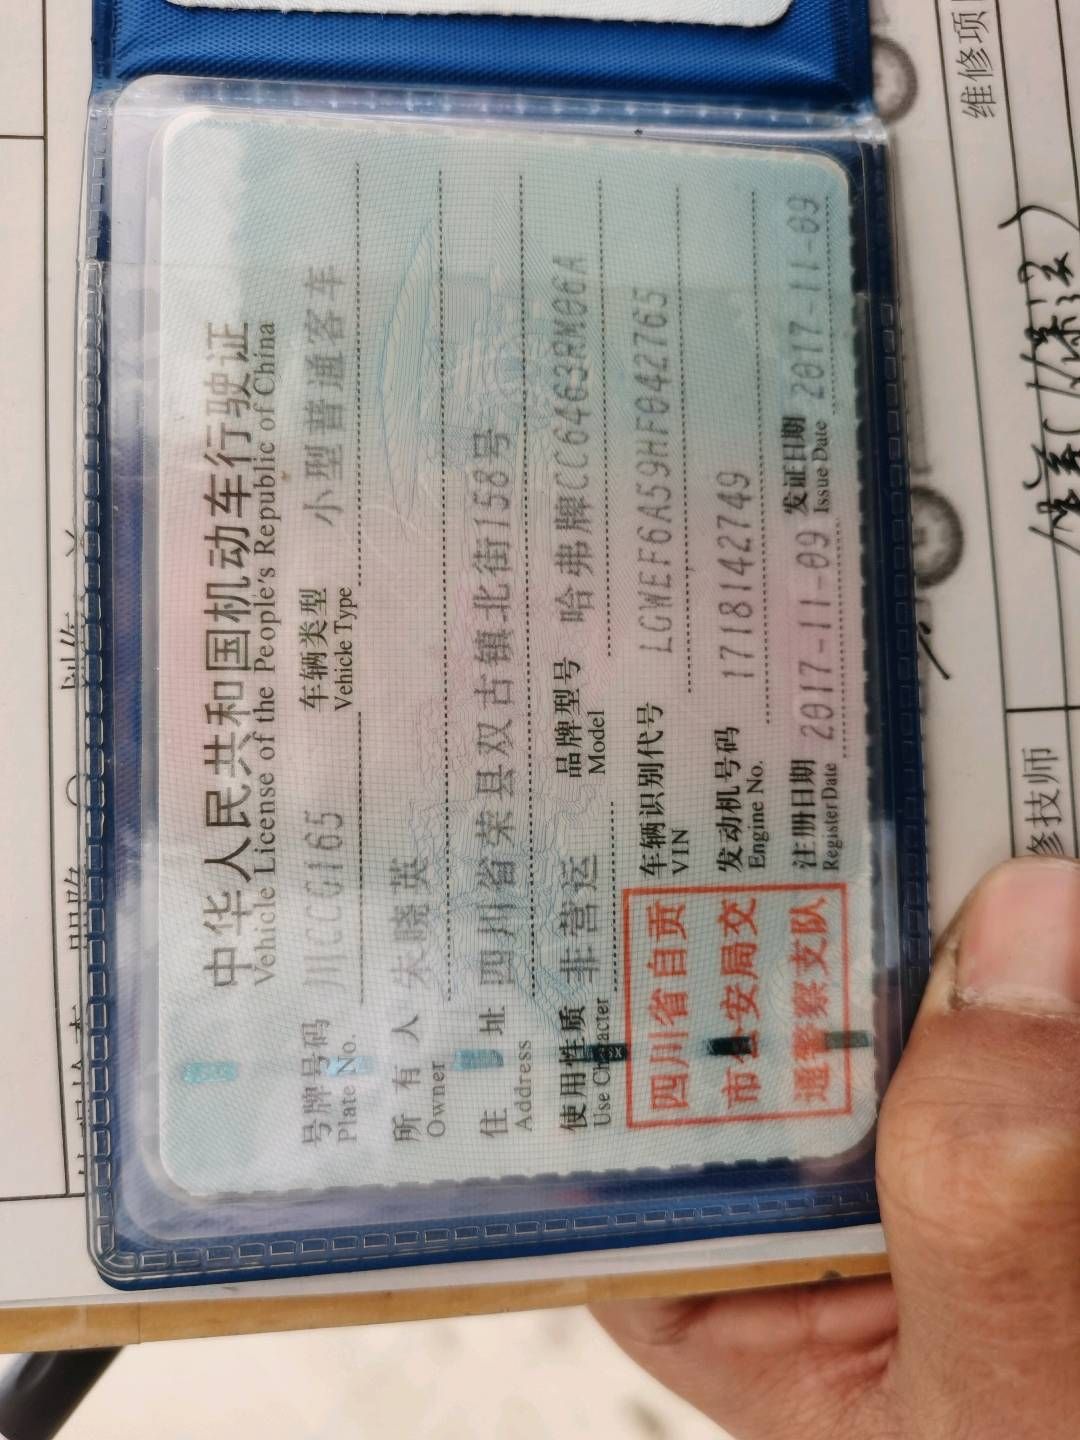 中华人民共和国机动车行驶证
Vehicle License of the People's Republic of China
号牌号码 川CCG165 车辆类型 小型普通客车
Plate No. Vehicle Type
所有人 宋晓英
Owner
住址 四川省荣县双古镇北街158号
Address
使用性质 非营运 品牌型号 哈弗牌CC6463RM06A
Use Character Model
四川省自贡
市公安局交
通警察支队
车辆识别代号 LGWEF6A59HF042765
VIN
发动机号码 1718142749
Engine No.
注册日期 2017-11-09 发证日期 2017-11-09
Register Date Issue Date
维修项
修技师